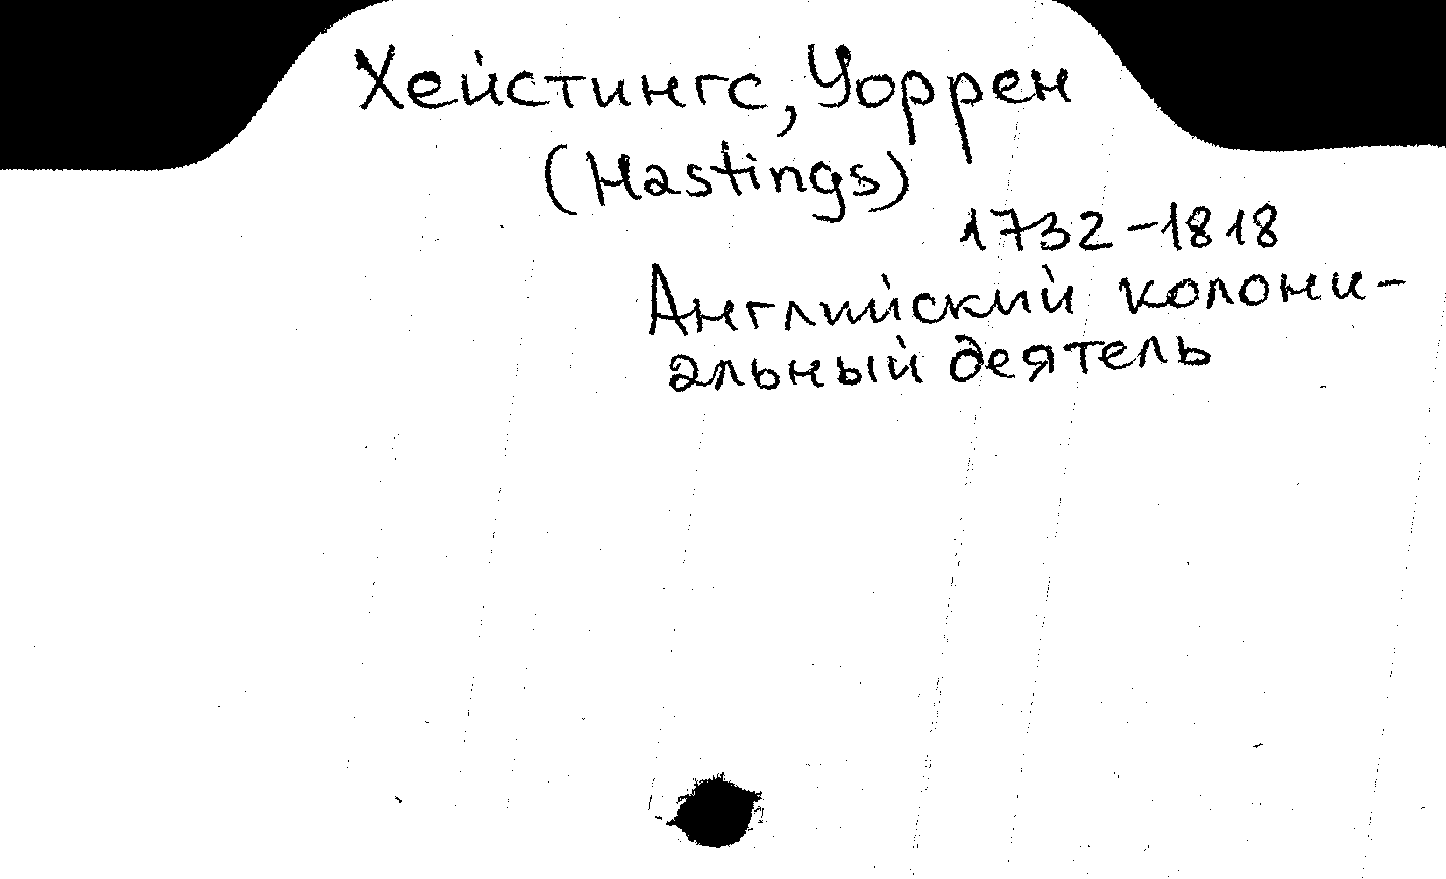 Хейстингс, Уоррен
(Hastings)
1732-1818
Английский колони-
альный деятель